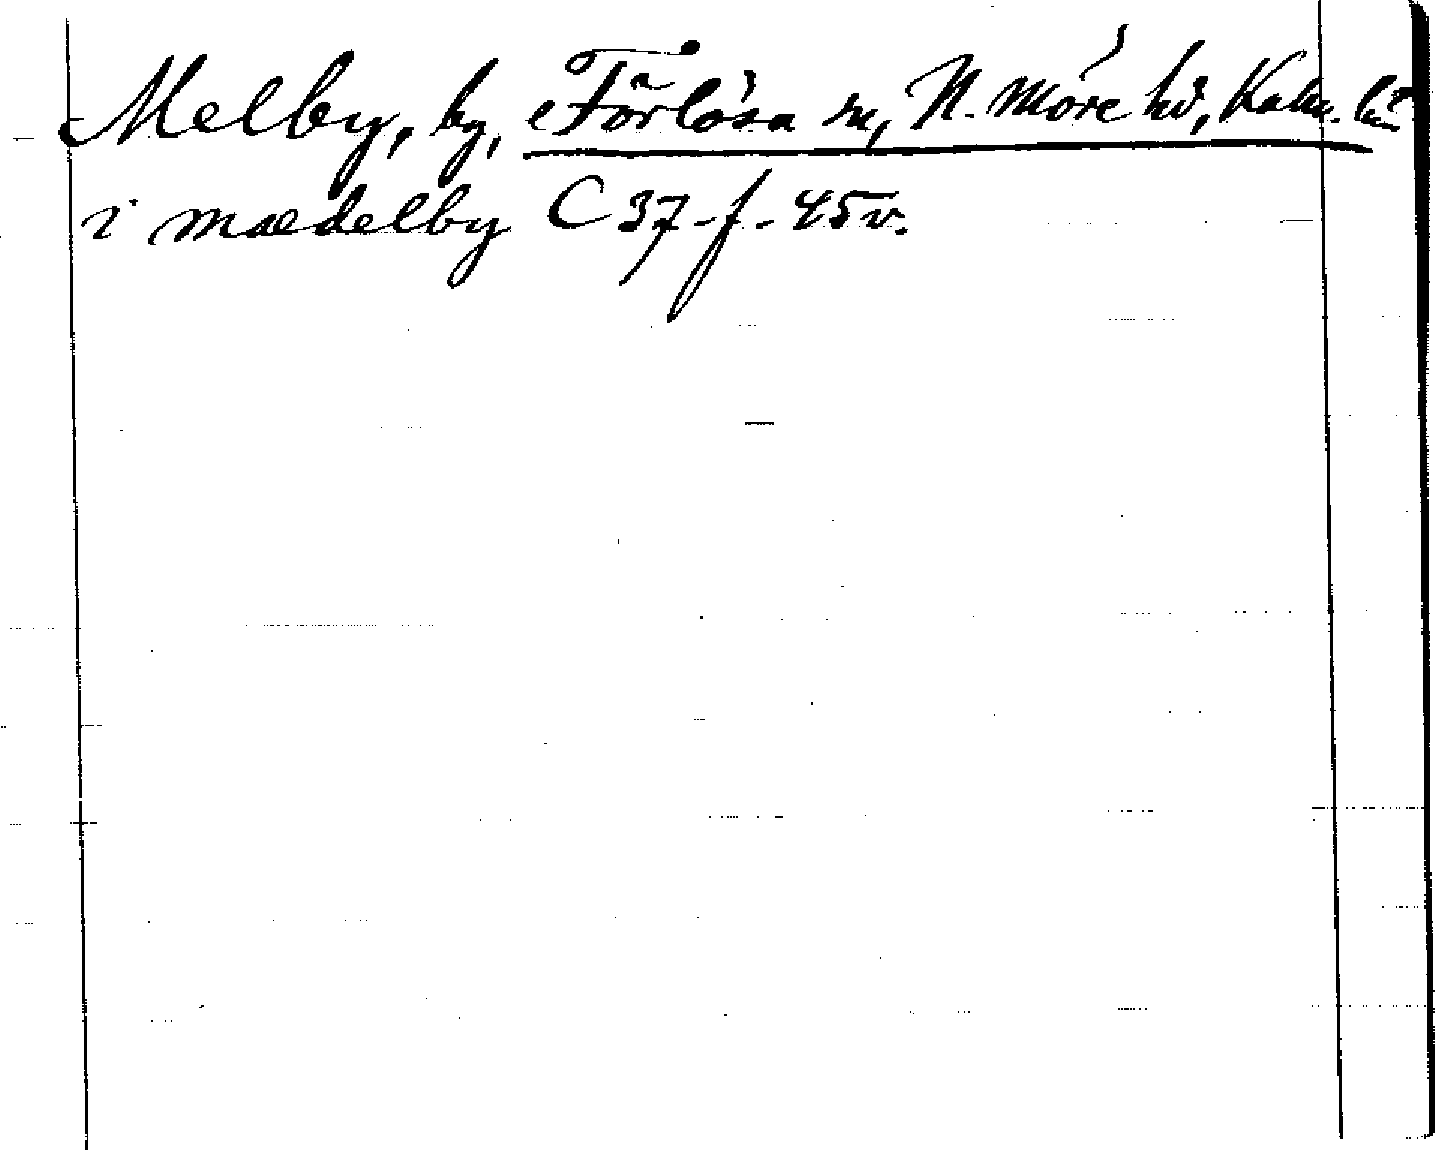 Melby, by, Förlösa sn, N. Möre hd, Kalm. län
i mædelby C 37 f. 45v.